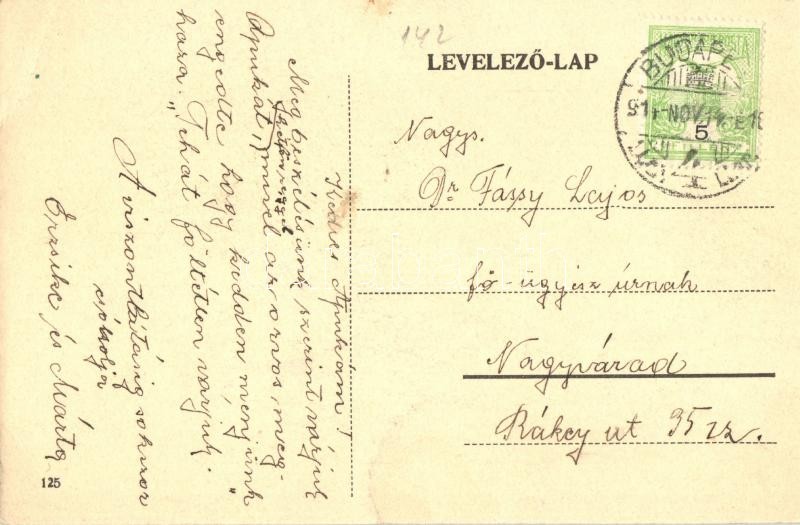 142
LEVELEZŐ-LAP
BUDAPE
914 NOV 14
5
Nagys.
Dr. Fássy Lajos
fő-ügyész úrnak
Nagyvárad
Rákcy ut 35 sz.
Kedves Apukám!
Megbeszélésünk szerint várjuk
Apukat, mivel az orvos, meg-
engedte hogy kedden menjünk
haza. „Tehát föltétlen várjuk."
A viszontlátásig sokszor
csókolja
Erzsike és Márta
125